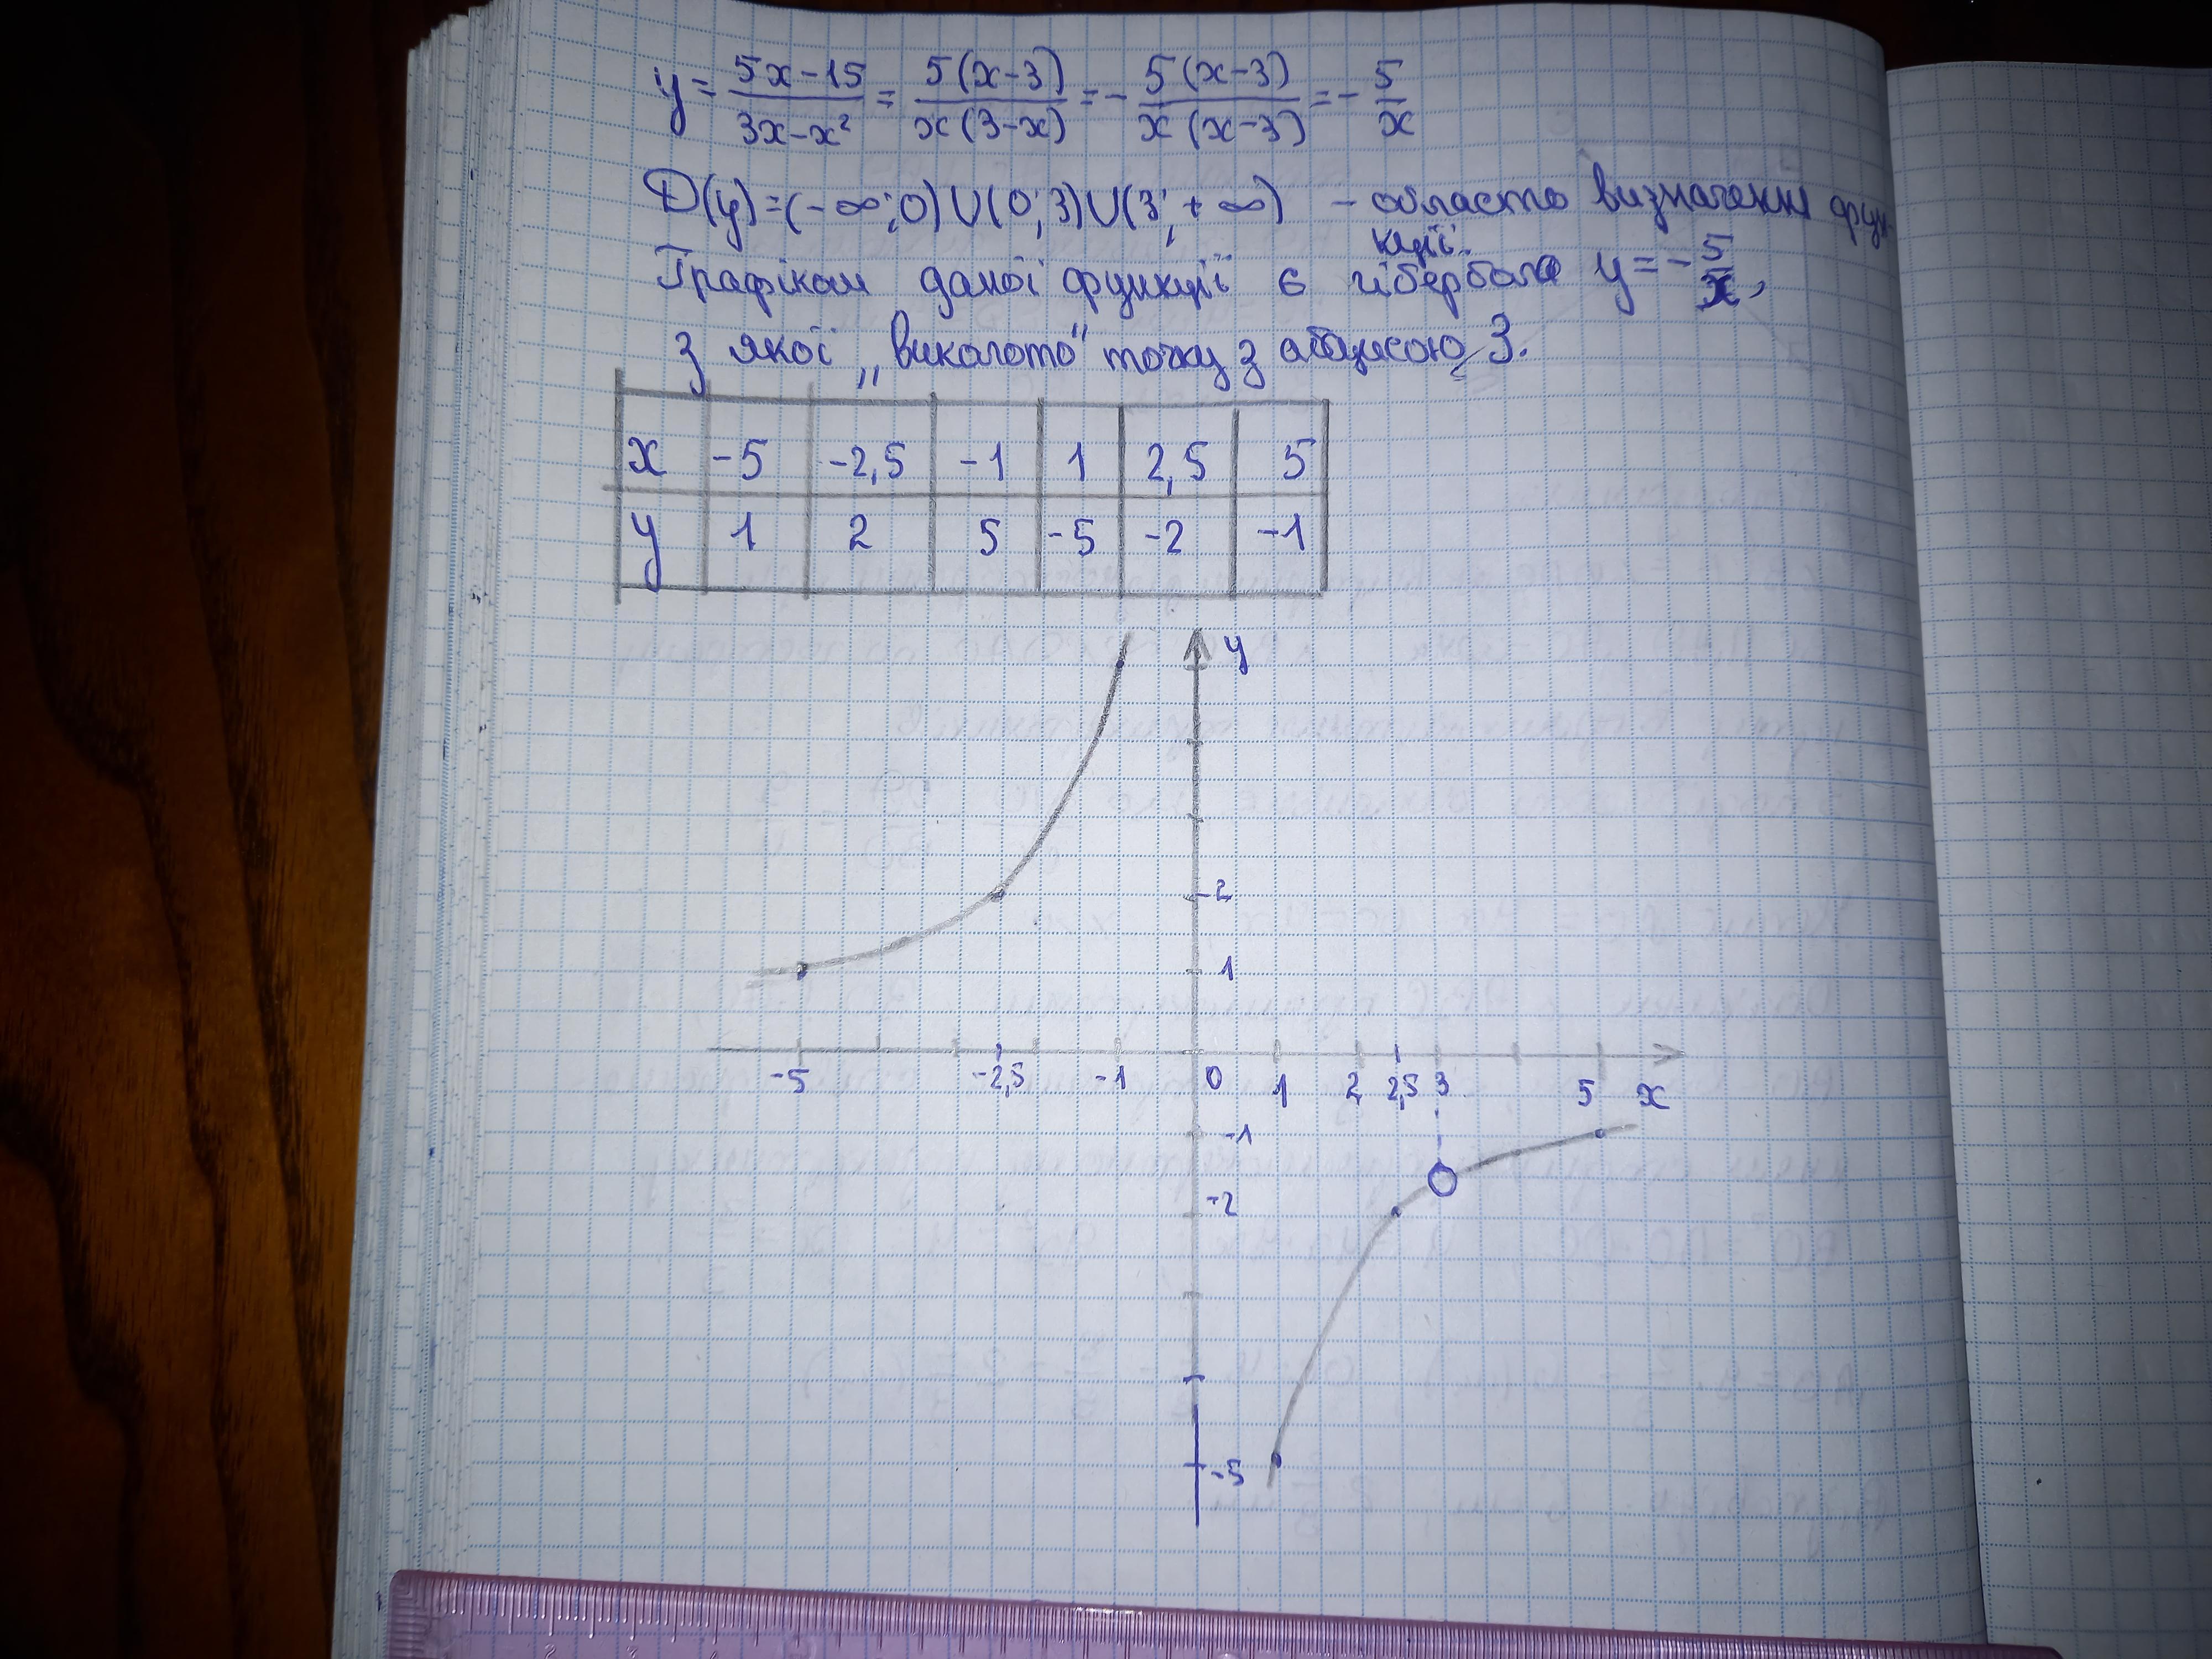 y = (5x-15)/(3x-x²) = 5(x-3)/(x(3-x)) = - 5(x-3)/(x(x-3)) = - 5/x
D(y)=(-∞;0)∪(0;3)∪(3;+∞) - область визначення функ
ції.
Графіком даної функції є гібербола y = - 5/x,
з якої „виколото" точку з абцисою 3.
x -5 -2,5 -1 1 2,5 5
y 1 2 5 -5 -2 -1
y
2
1
-5 -2,5 -1 0 1 2 2,5 3 5 x
-1
-2
-5